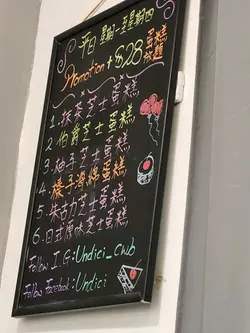 平日 星期一至星期四
Promotion + $28 蛋糕放題
1. 抹茶芝士蛋糕
2. 伯爵芝士蛋糕
3. 柚子芝士蛋糕
4. 榛子海綿蛋糕
5. 朱古力芝士蛋糕
6. 日式原味芝士蛋糕
Follow I.G: Undici_cwb
Follow Facebook: Undici